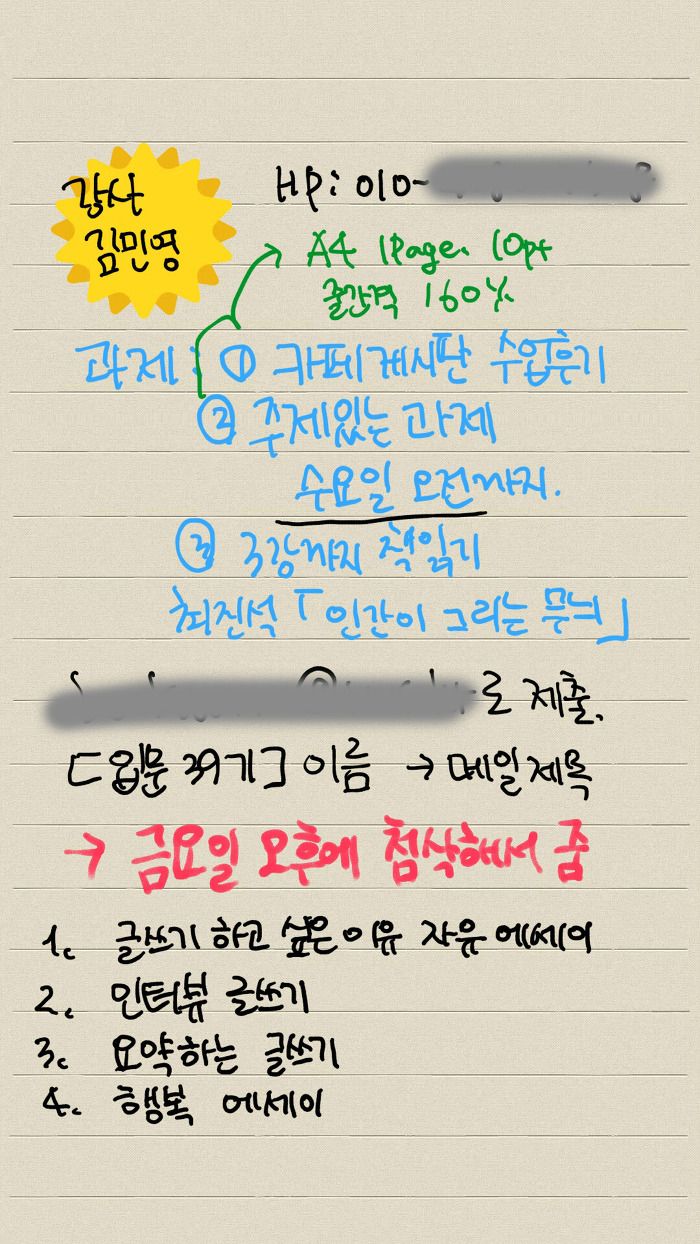 강사
김민영
HP: 010-
A4 1Page. 10pt
줄간격 160%
과제: ① 카페게시판 수업후기
② 주제있는 과제
수요일 오전까지.
③ 3강까지 책읽기
최진석「인간이 그리는 무늬」
로 제출.
[입문 39기] 이름 → 메일제목
→ 금요일 오후에 첨삭해서 줌
1. 글쓰기 하고 싶은이유 자유 에세이
2. 인터뷰 글쓰기
3. 요약하는 글쓰기
4. 행복 에세이